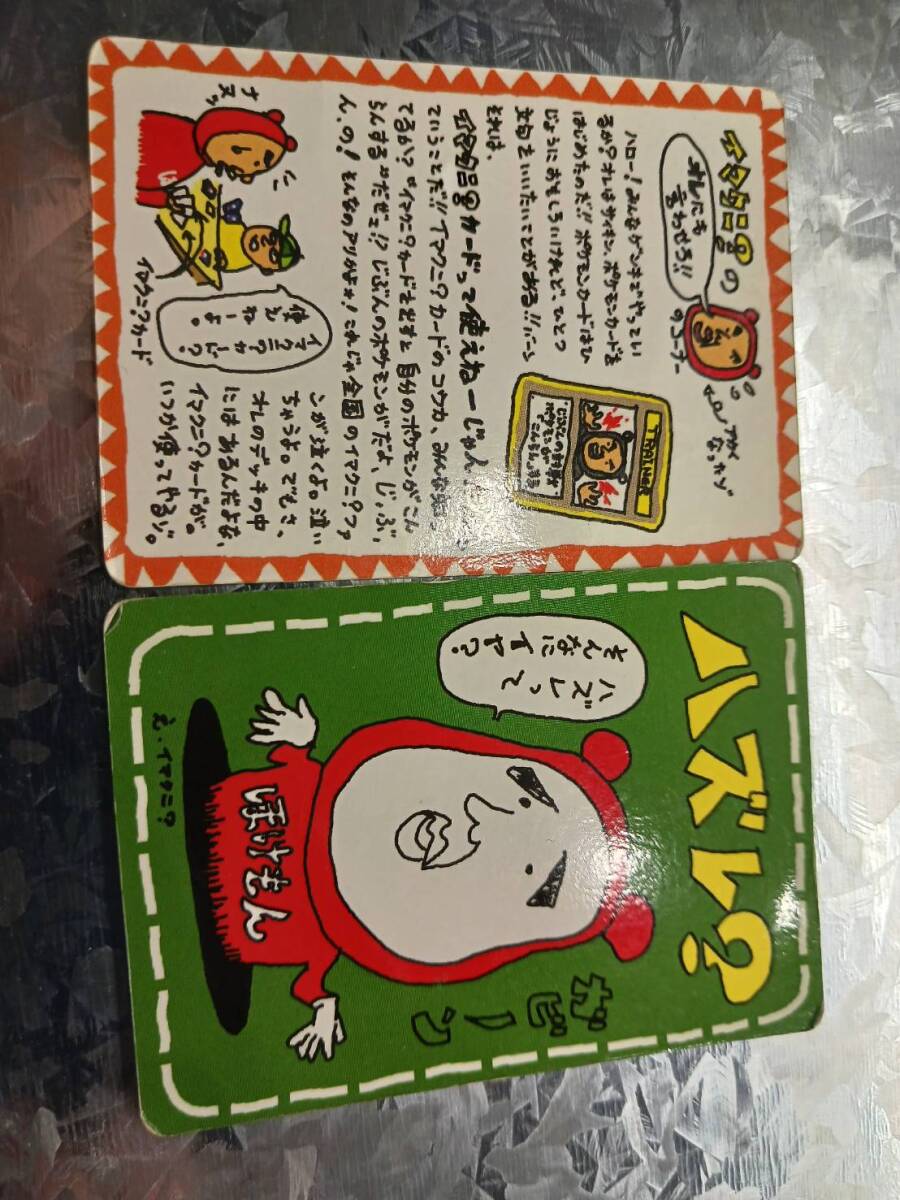 イマクニ?の
オレにも
言わせろ!!
のコーナー
アカく
なったゾ
ハロー!みんなゲンキでやってい
るか?オレはサイキン、ポケモンカードを
はじめたのだ!!ポケモンカードはひ
じょうにおもしろいけれど、ひとつ
文句をいいたいことがある!!
それは、
イマクニ?カードって使えねーじゃん
ていうことだ!!イマクニ?カードのコウカ、みんな知っ
てるか?「イマクニ?カードを出すと自分のポケモンがこん
らんする」だぜェ!?じぶんのポケモンがだよ、じ、ぶ、
ん、の!そんなのアリかよォ!これじゃ全国のイマクニ?ファ
ンが泣くよ。泣い
ちゃうよ。でもさ、
オレのデッキの中
にはあるんだよな、
イマクニ?カードが。
いつか使ってやるゾ。
TRAINER
イマクニ?カー
ド?使え
ねーよ。
イマクニ?カード
ハズレ?
ハズレって
そんなにイヤ?
ガビーン
ぽけもん
え・イマクニ?